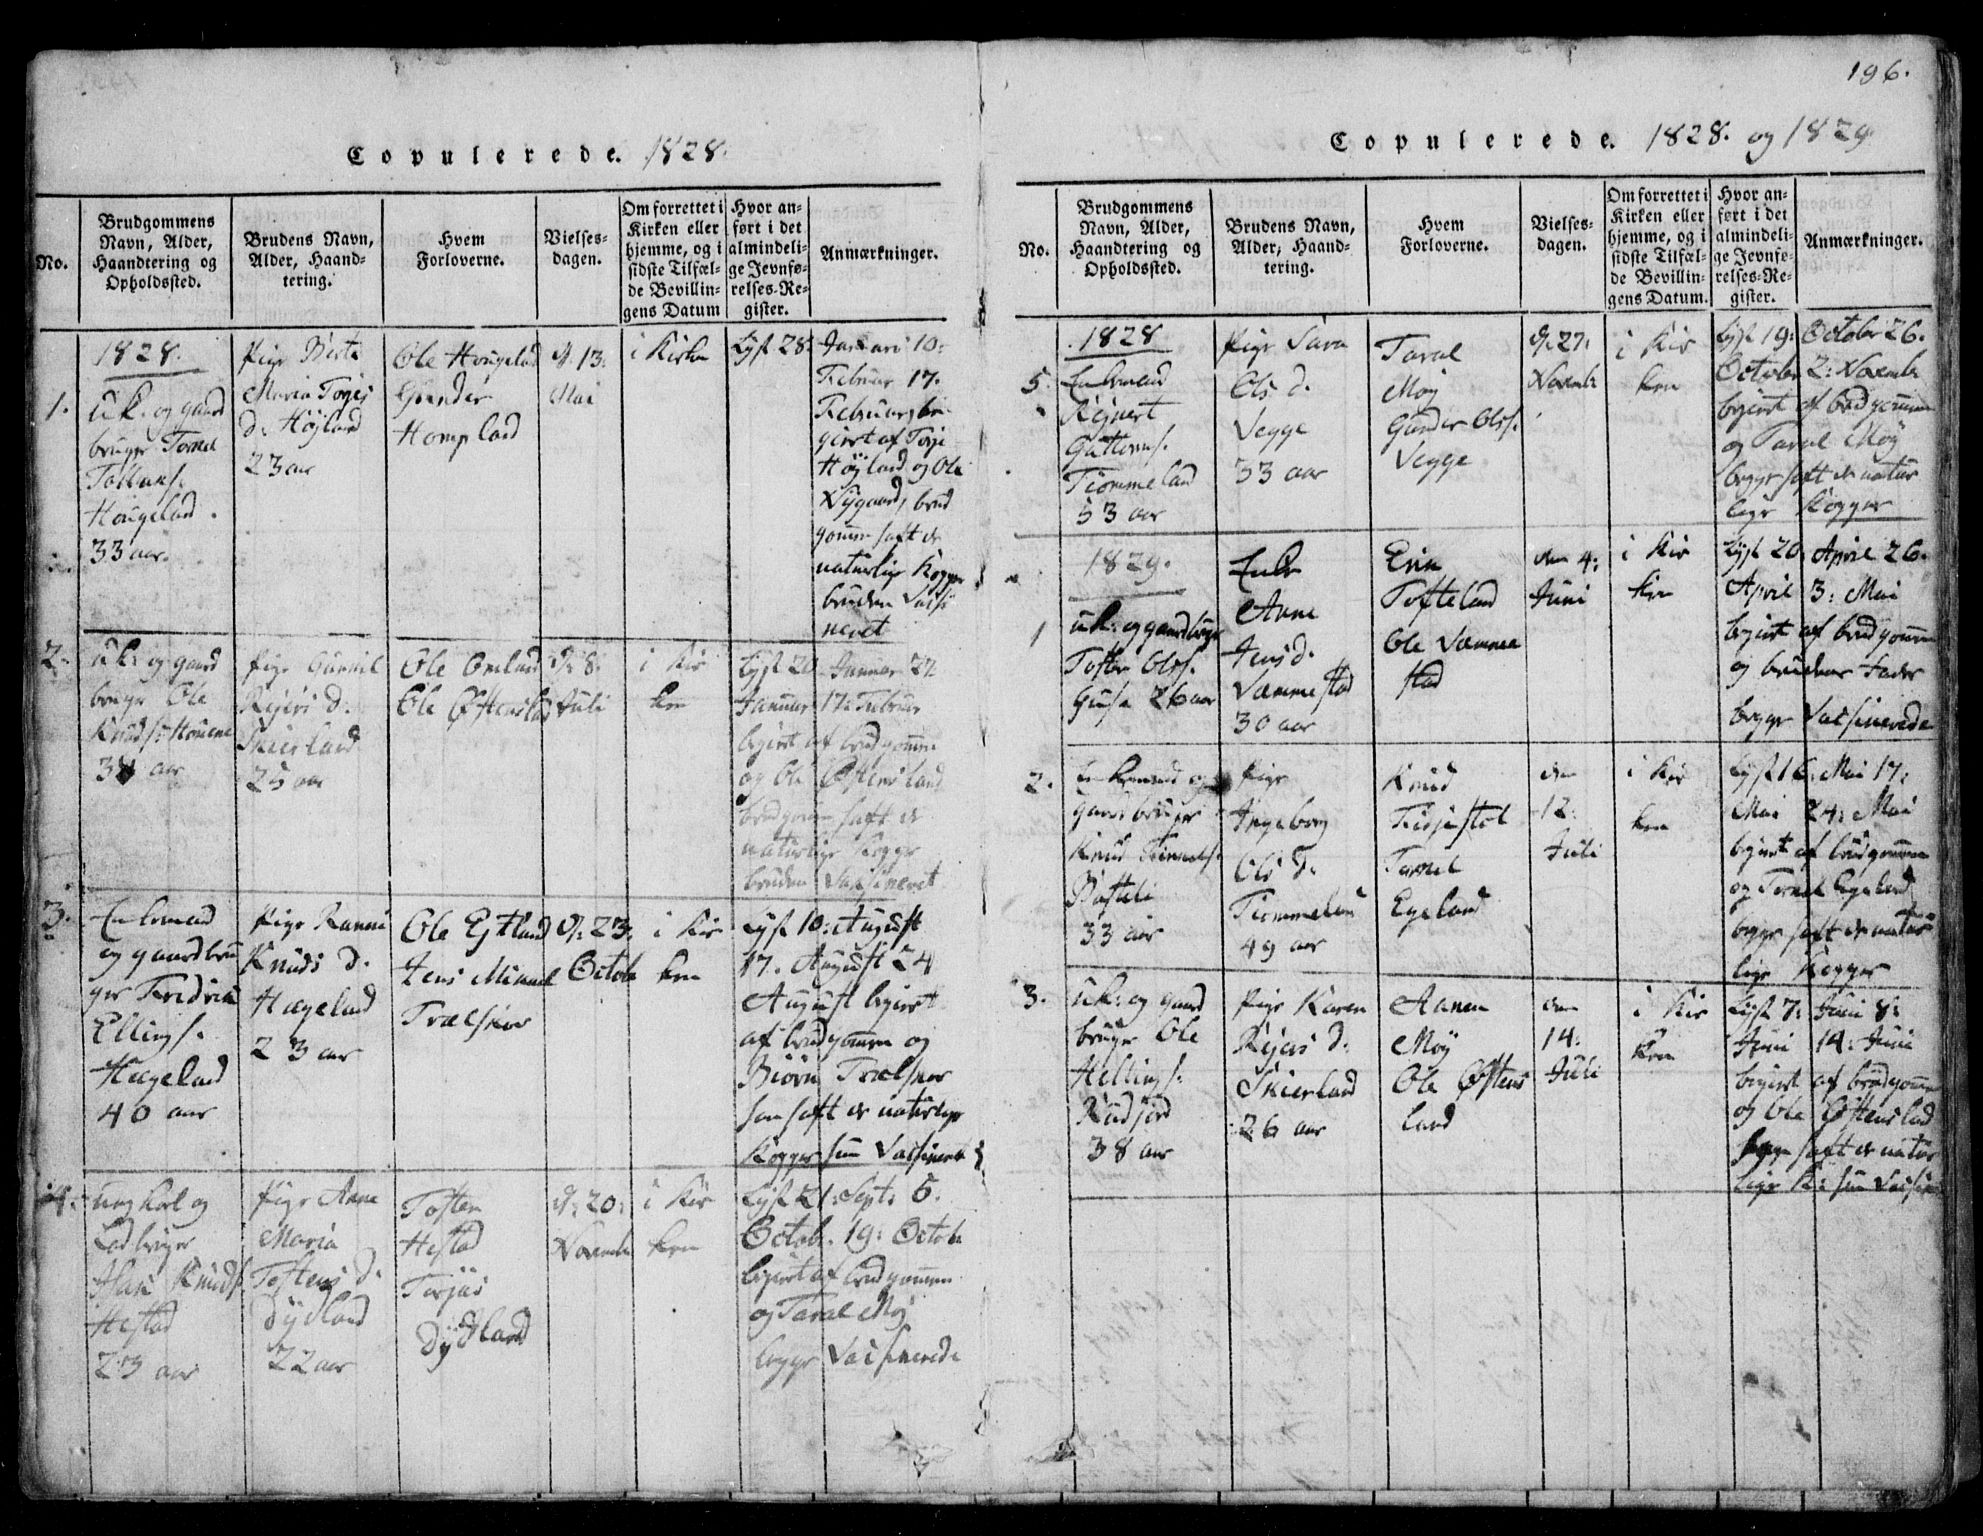 196.
Copulerede. 1828.
No.
Brudgommens Navn, Alder, Haandtering og Opholdssted.
Brudens Navn, Alder, Haandtering.
Hvem Forloverne.
Vielsesdagen.
Om forrettet i Kirken eller hjemme, og i sidste Tilfælde Bevillingens Datum
Hvor anført i det almindelige Jevnførelses-Register.
Anmærkninger.
1828.
1.
uk. og gaard
bruger Tomel
Tollaks.
Hougeland.
33 aar.
Pige Berte
Maria Torjes
d. Højland
23 aar
Ole Hougeland
Gunder
Hompland
d. 13:
Mai
i Kirken
Lyst 28: Januari 10:
Februar 17.
Februar, be
giert af Torje
Højland og Ole
Nygaard, brud
gomm haft de
naturlige Kopper
bruden Vaksi
neret
2.
uk: og gaard
bruger Ole
Knuds. Houene
aar
Pige Gunnil
Rejers d.
Skierland
25 aar
Ole Omland
Ole Østensland
d. 8.
Juli
i Kir
ken
Lyst 20 Januar 27.
Januar 17: Februar
begiert af brudgomm
og Ole Østensland
brudgom haft de
naturlige Kopper
bruden Vaksineret
3.
Enkemand
og gaardbru
ger Fredrik
Ellings.
Hægeland
40 aar
Pige Ranni
Knuds d.
Hægeland
23 aar
Ole Eftland
Jens Mikkel
Trælsker
d. 23:
Octob
i Kir
ken
Lyst 10: August
17. August 24
August begiert
af brudgommen og
Biørn Trælsker
han haft de naturlige
Kopper hun Vaksineret
4.
ung karl og
Lad bruger
Hans Knuds.
Hestad
23 aar
Pige Anne
Maria
Tostens d.
Dydland
22 aar
Tosten
Hestad
Torjus
Dydland
d. 20:
Novemb
i Kir
ken
Lyst 21: Sept: 5:
Octob. 19: Octob
begiert af brudgommen
og Taral Møj
begge Vaksinerede
Copulerede. 1828. og 1829
No.
Brudgommens Navn, Alder, Haandtering og Opholdssted.
Brudens Navn, Alder, Haandtering.
Hvem Forloverne.
Vielsesdagen.
Om forrettet i Kirken eller hjemme, og i sidste Tilfælde Bevillingens Datum.
Hvor anført i det almindelige Jevnførelses-Register.
Anmærkninger.
1828
5.
Enkemand
Rejnert
Guttorms.
Tiommeland
53 aar
Pige Sara
Ols d.
Vegge
33 aar
Taral
Møy
Gunder Olss.
Vegge
d. 27:
Novemb
i Kir
ken
Lyst 19: October 26.
October 2: Novemb
begiert af brudgommen
og Taral Møy
begge haft de natur
lige Kopper
1829.
1
uk: og gaardbruger
Tosten Olss.
26 aar
Enke
Anne
Jens d.
Væmmestad
30 aar
Erik
Tofteland
Ole Væmme
stad
den 4:
Juni
i Kir
ken
Lyst 20: April 26.
April 3: Mai
begiert af brudgommen
og brudens fader
begge Vaksinerede
2.
Enkemand og
gaardbruger
Knud
33 aar
Pige
Ingeborg
Ols d.
Tiommeland
49 aar
Knud
Tomel
Egeland
den
12:
Juli
i Kir
ken
Lyst 16: Mai 17:
Mai 24: Mai
begiert af brudgommen
og Tomel Egeland
begge haft de natur
lige Kopper
3.
uk: og gaard
bruger Ole
Hellings.
Rudjord
38 aar
Pige Karen
Rejers d.
Skierland
26 aar
Aanen
Møy
Ole Østens
land
den
14:
Juli
i Kir
ken
Lyst 7: Juni 8:
Juni 14: Juni
begiert af brudgommen
og Ole Østensland
begge haft de natur
lige K: hun Vaksin